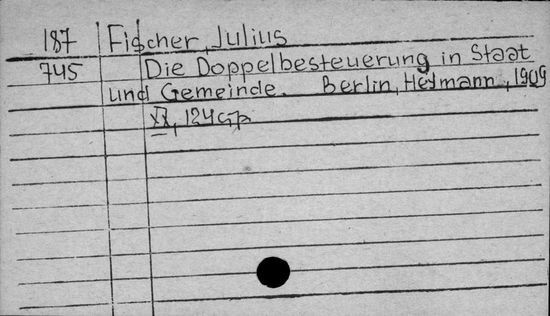 187 Fischer, Julius
745 Die Doppelbesteuerung in Staat
und Gemeinde. Berlin, Heymann, 1909
XX, 124 стр